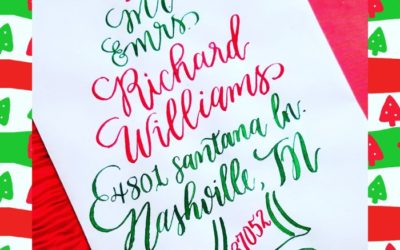 Mr
&mrs.
Richard
Williams
4801 santana ln.
Nashville, TN
37052